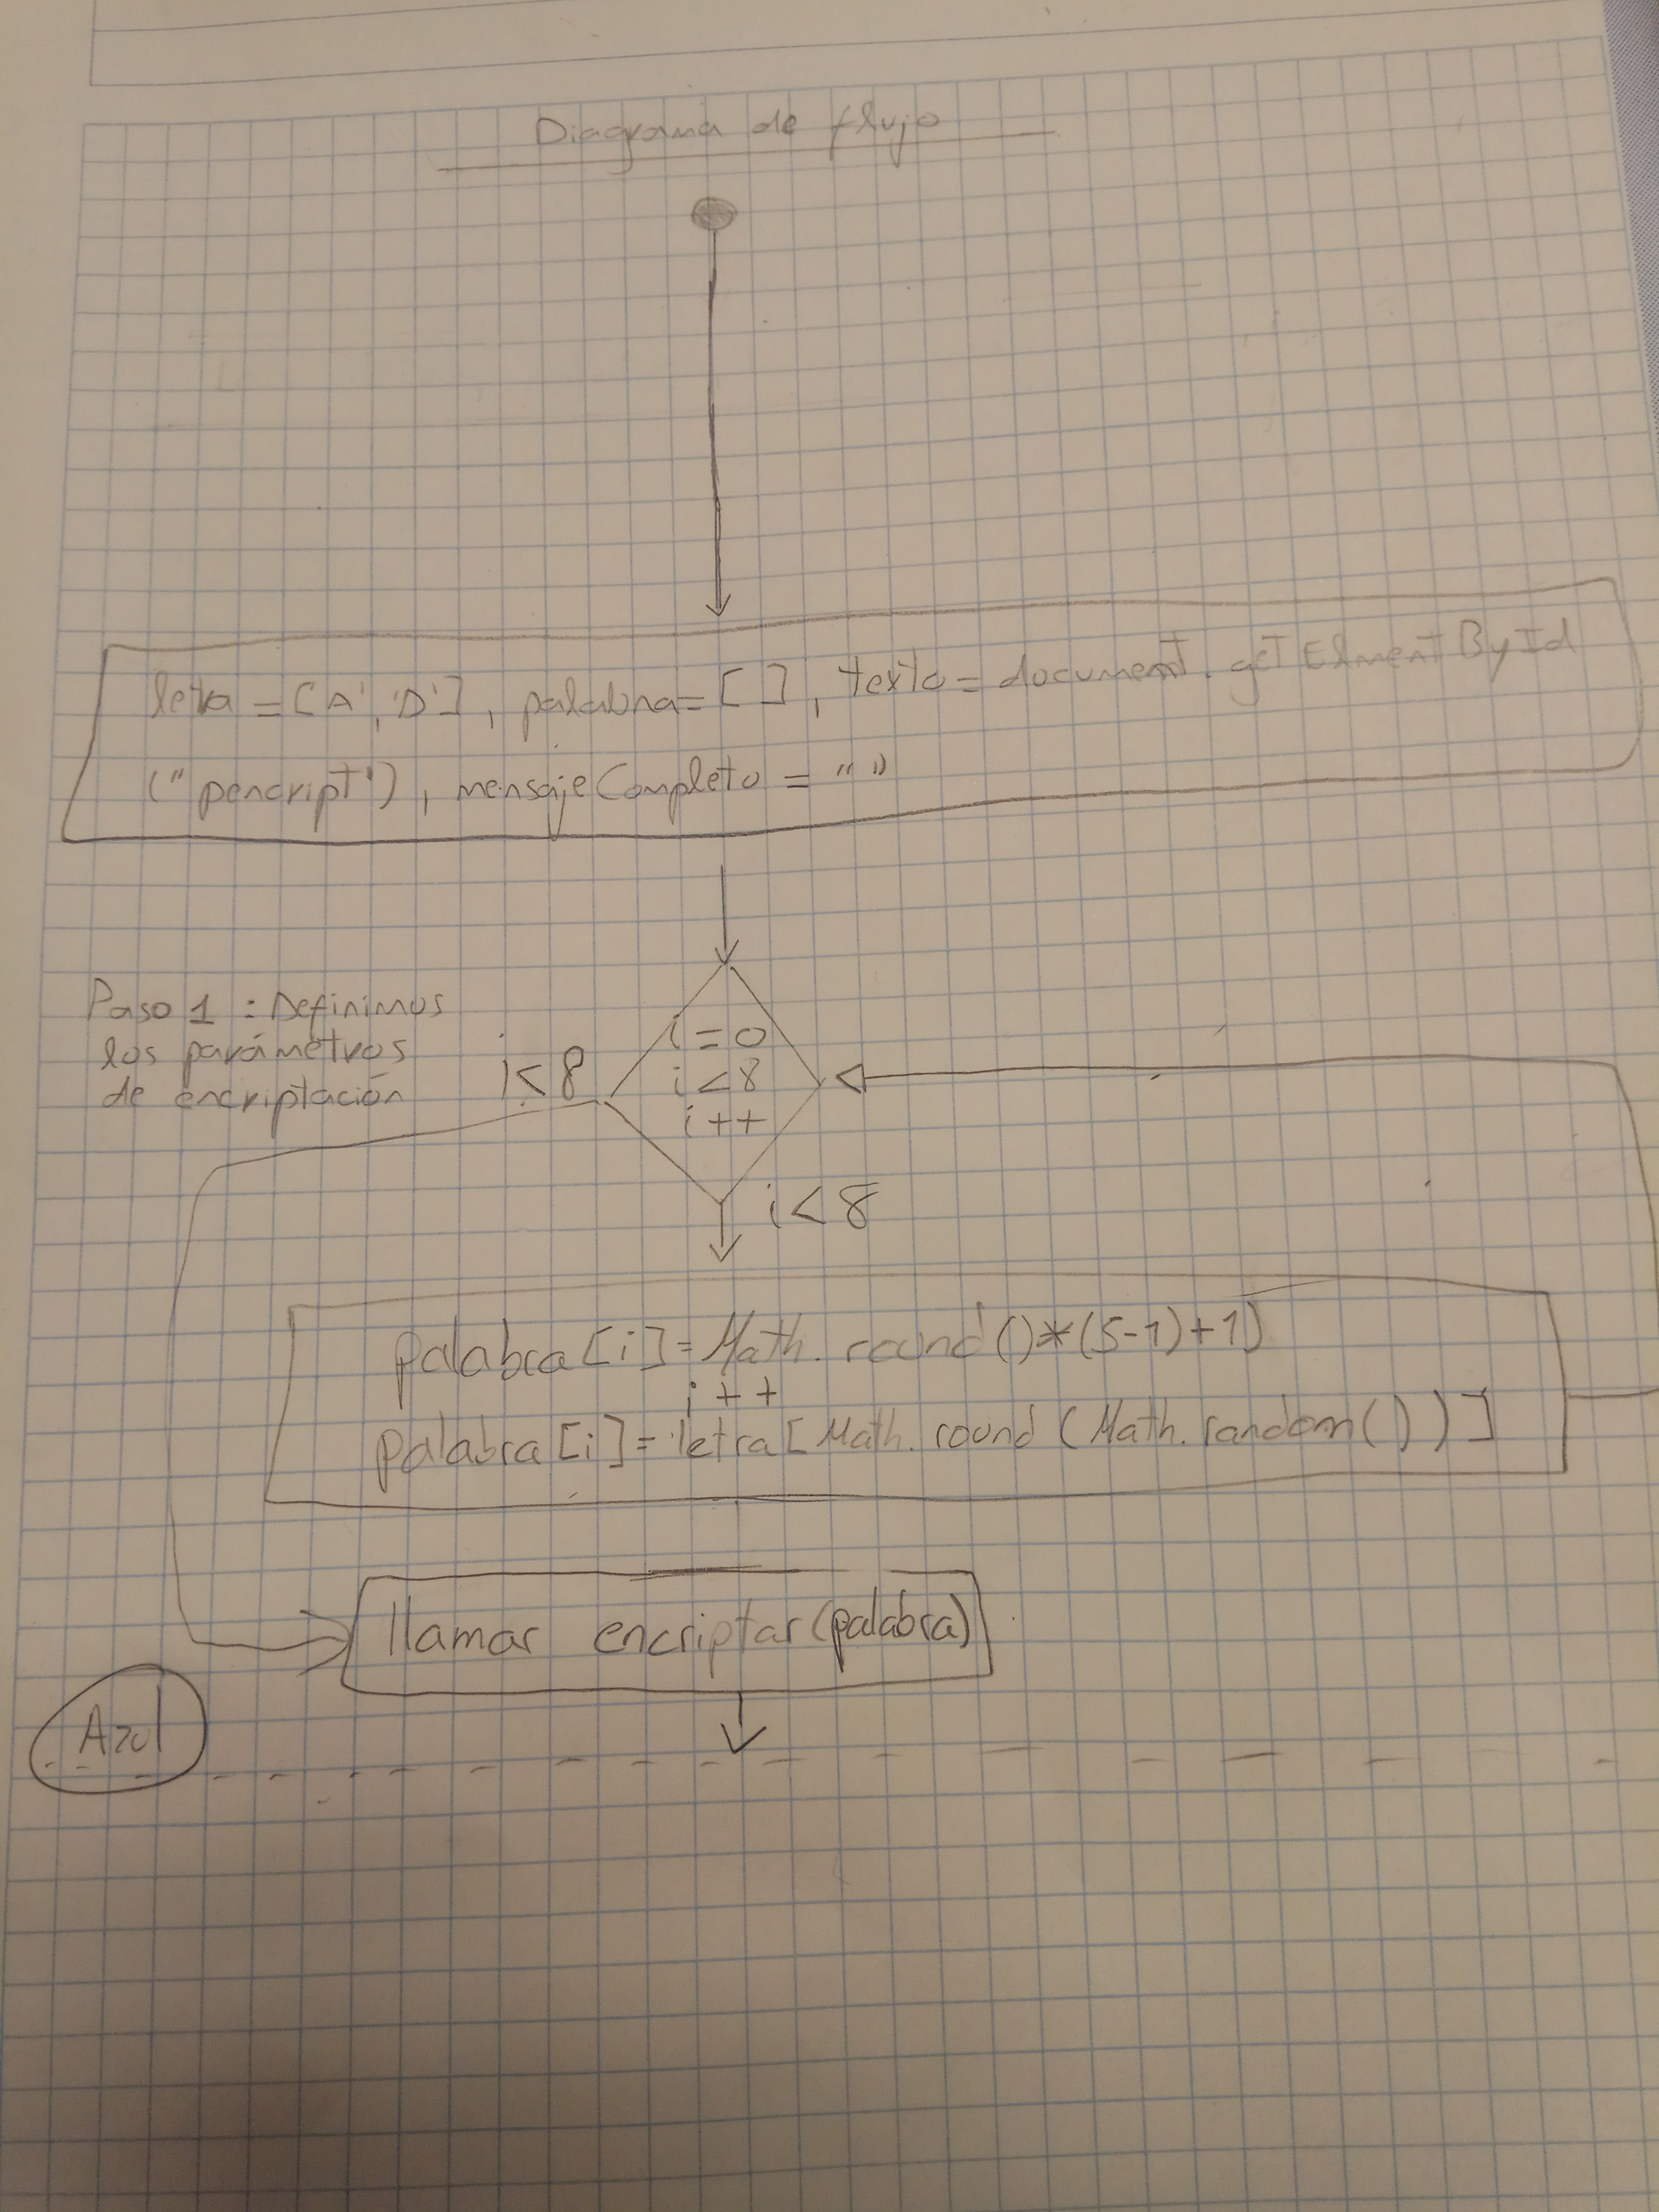 Diagrama de flujo
letra = [A', 'D'], palabra = [ ], texto = document. getElmentById
("pencript"), mensajeCompleto = " "
Paso 1 : Definimos
los parámetros
de encriptación
i<8
i=0
i<8
i++
i<8
palabra[i]=Math. round()*(5-1)+1)
i++
palabra[i]=letra[Math. round (Math. random())]
llamar encriptar(palabra)
Azul